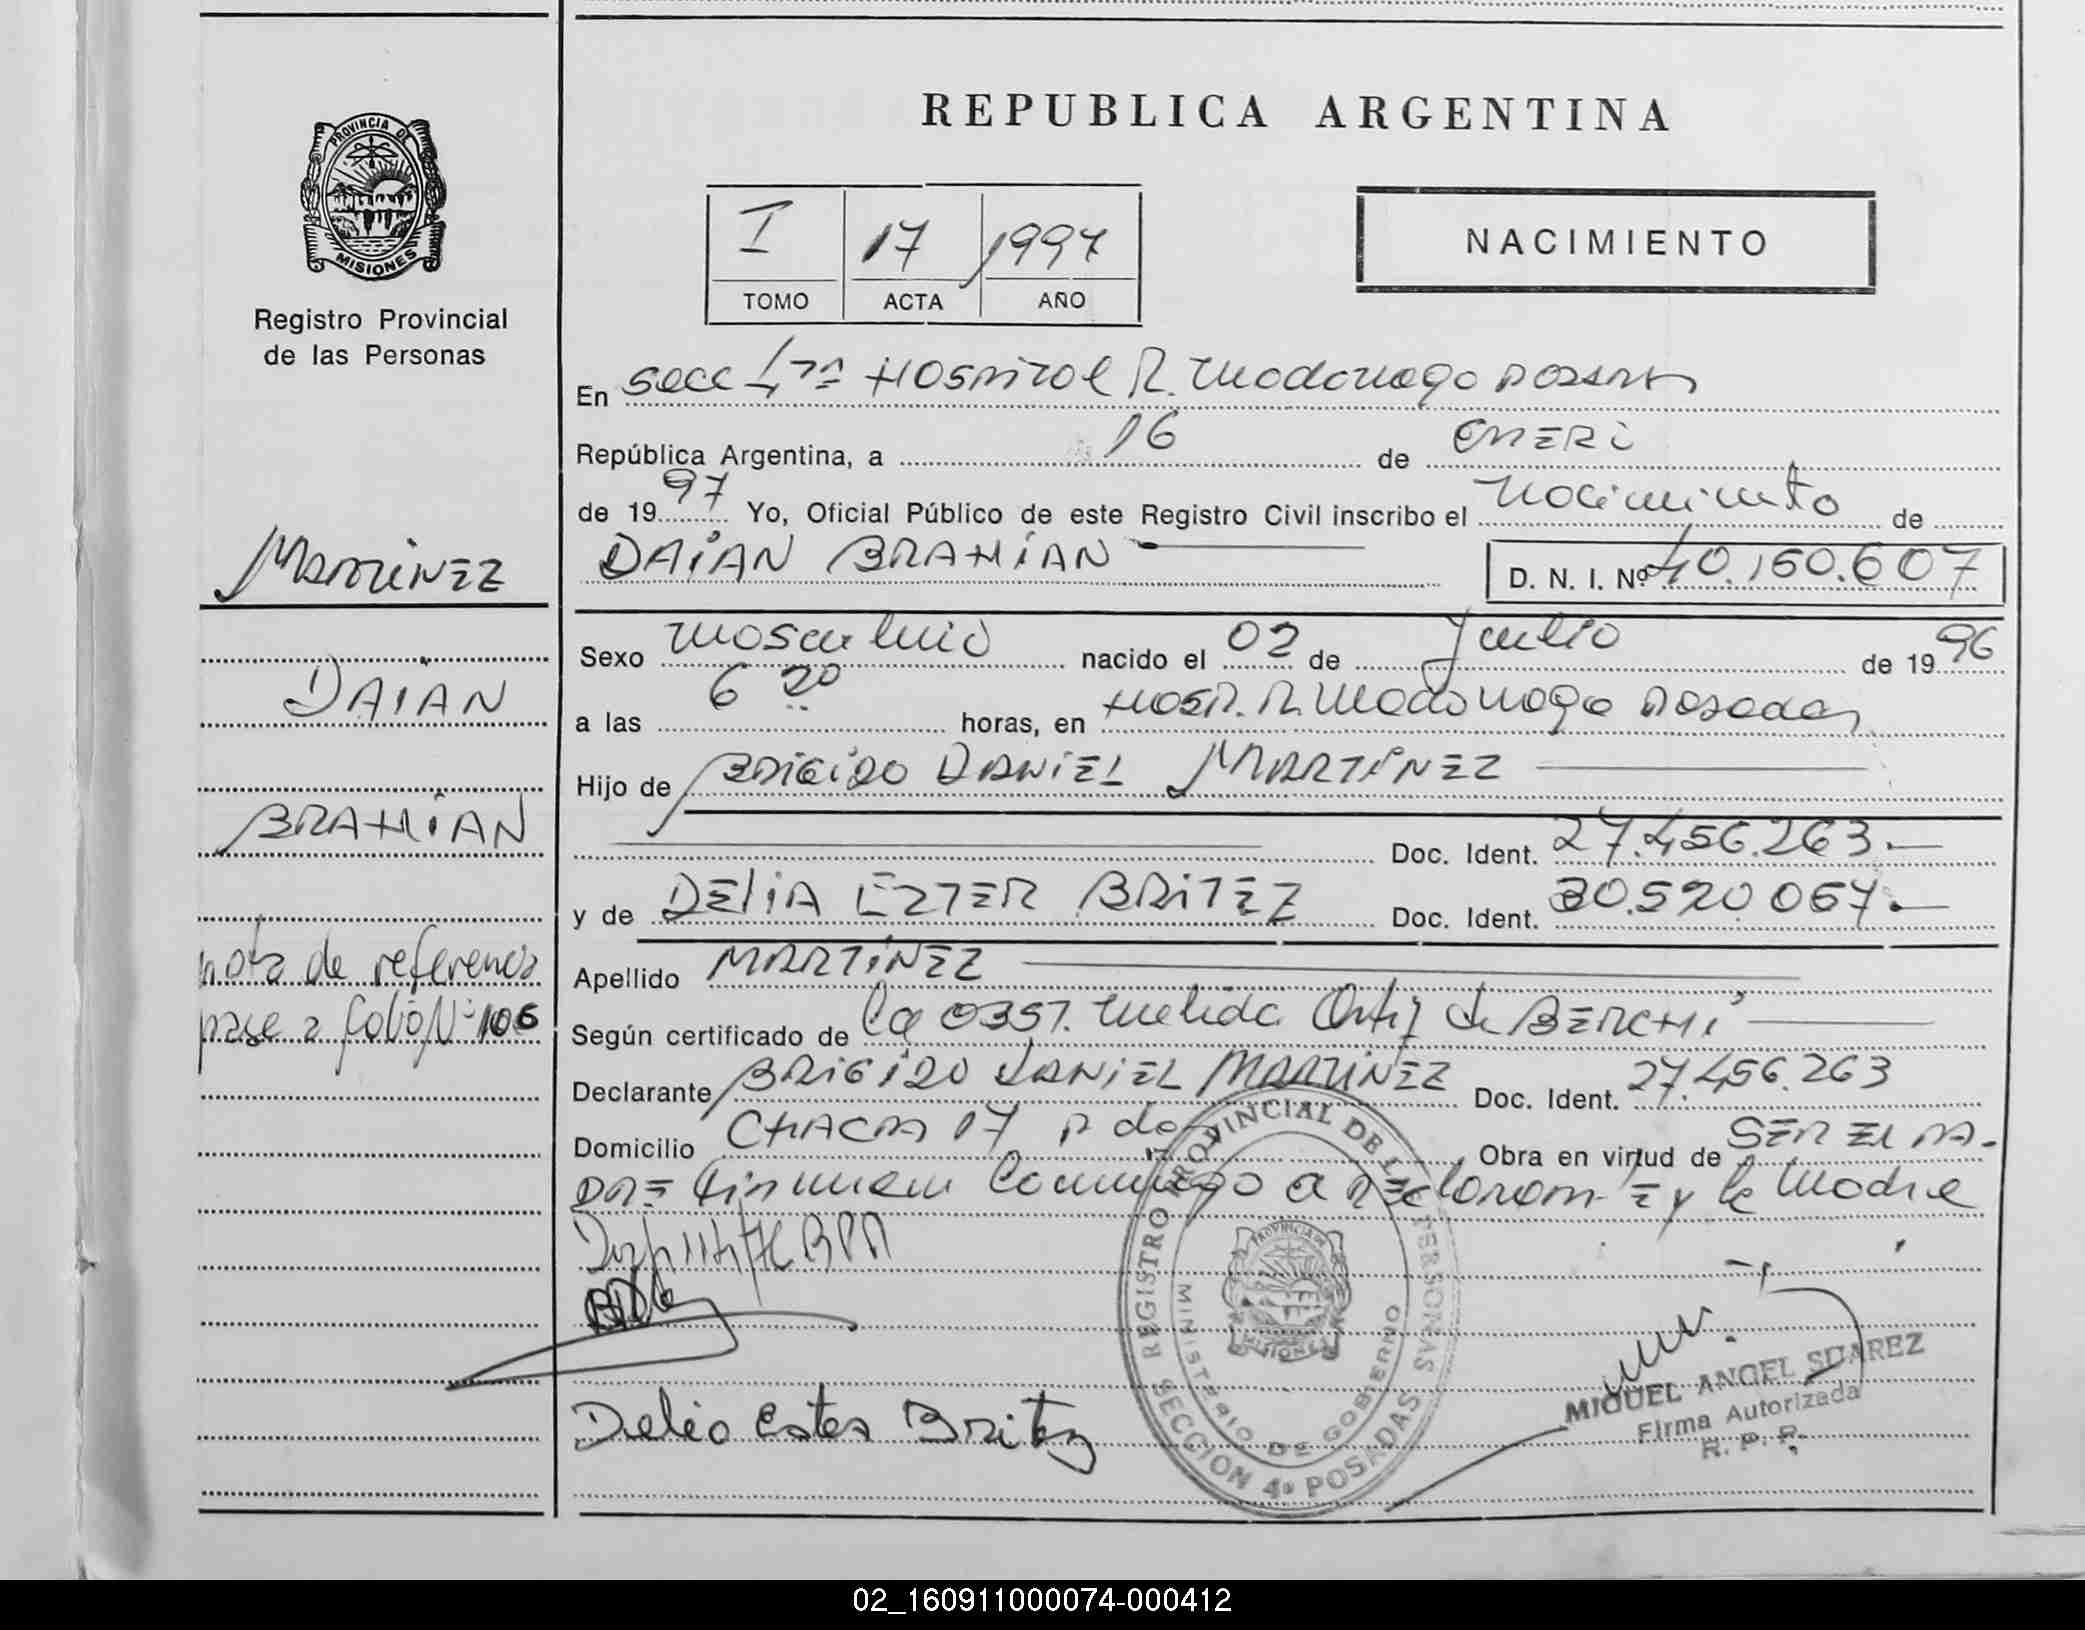 PROVINCIA DE
MISIONES
Registro Provincial
de las Personas
MARTINEZ
DAIAN
BRAHIAN
nota de referencia
pase a folio Nº 106
REPUBLICA ARGENTINA
I 17 1997
TOMO ACTA AÑO
NACIMIENTO
En Secc 4ta Hospital R. Madariaga Posadas
República Argentina, a 16 de ENERO
de 1997 Yo, Oficial Público de este Registro Civil inscribo el Nacimiento de
DAIAN BRAHIAN D. N. I. Nº 40.160.607
Sexo Masculino nacido el 02 de Julio de 1996
a las 6 20 horas, en HOSP. R. Madariaga Posadas
Hijo de BRIGIDO DANIEL MARTINEZ
Doc. Ident. 27.456.263.-
y de DELIA EZTER BRITEZ Doc. Ident. 30.520.067.-
Apellido MARTINEZ
Según certificado de la OBST. Nelida Ortiz de BERCHI
Declarante BRIGIDO DANIEL MARTINEZ Doc. Ident. 27.456.263
Domicilio CHACRA 17 Obra en virtud de SER EL PA-
DRE Firman Conmigo el DEclarante y la Madre
Delia Ester Britez
REGISTRO PROVINCIAL DE LAS PERSONAS
MINISTERIO DE GOBIERNO
SECCION 4ª POSADAS
PROVINCIA DE
MISIONES
MIGUEL ANGEL SUAREZ
Firma Autorizada
R. P. P.
02_160911000074-000412